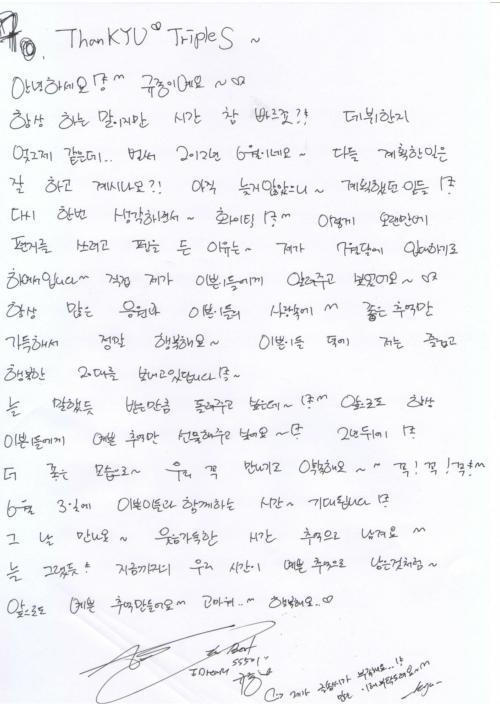 To. ThanKYU♡ TripleS ~
안녕하세요!^ 규종이에요~♡
항상 하는 말이지만 시간 참 빠르죠?! 데뷔한지
엊그제 같은데.. 벌써 2012년 6월이네요~ 다들 계획한일은
잘 하고 계시나요?! 아직 늦지않았으니~ 계획했던 일들
다시 한번 생각하면서~ 화이팅 이렇게 오랜만에
편지를 쓰려고 펜을 든 이유는~ 제가 7월달에 입대하기로
해서입니다 직접 제가 이쁜이들에게 알려주고 보았어요~♡
항상 많은 응원과 이쁜이들의 사랑속에 좋은 추억만
가득해서 정말 행복해요~ 이쁜이들 덕에 저는 즐겁고
행복한 20대를 보내고있답니다 ~
늘 말했듯 받은만큼 돌려주고 싶은데~ 앞으로도 항상
이쁜이들에게 예쁜 추억만 선물해주고 싶어요~ 2년뒤에
더 좋은 모습으로~ 우리 꼭 만나기로 약속해요~ 꼭!꼭!꼭!
6월 3일에 이쁜이들과 함께하는 시간~ 기대됩니다
그 날 만나요~ 웃음가득한 시간 추억으로 남겨요
늘 그랬듯 지금까지의 우리 시간이 예쁜 추억으로 남은것처럼~
앞으로도 예쁜 추억만들어요 고마워.. 행복해요..♡
SS501
규종
제가 글씨가 부족해요..!
Kyu